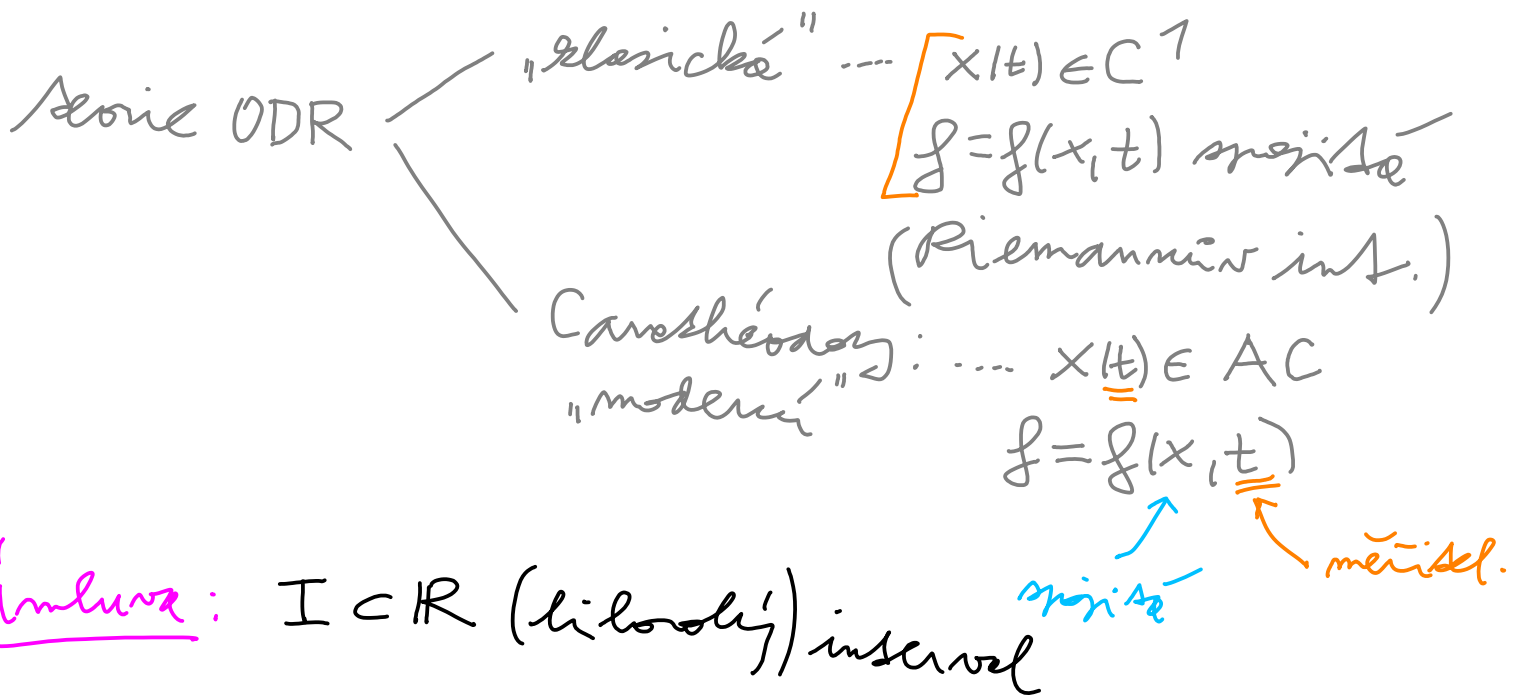 teorie ODR
„klasická" .... x(t) ∈ C¹
f = f(x, t) spojitá
(Riemannův int.)
Carathéodory: .... x(t) ∈ AC
„moderní"
f = f(x, t)
spojitá
měřitel.
Úmluva: I ⊂ ℝ (libovolný) interval